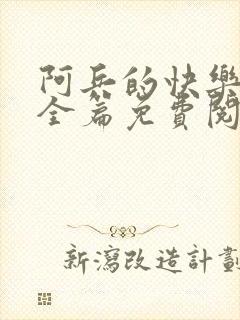 阿兵的快樂
全篇免費閱
新瀉改造計劃